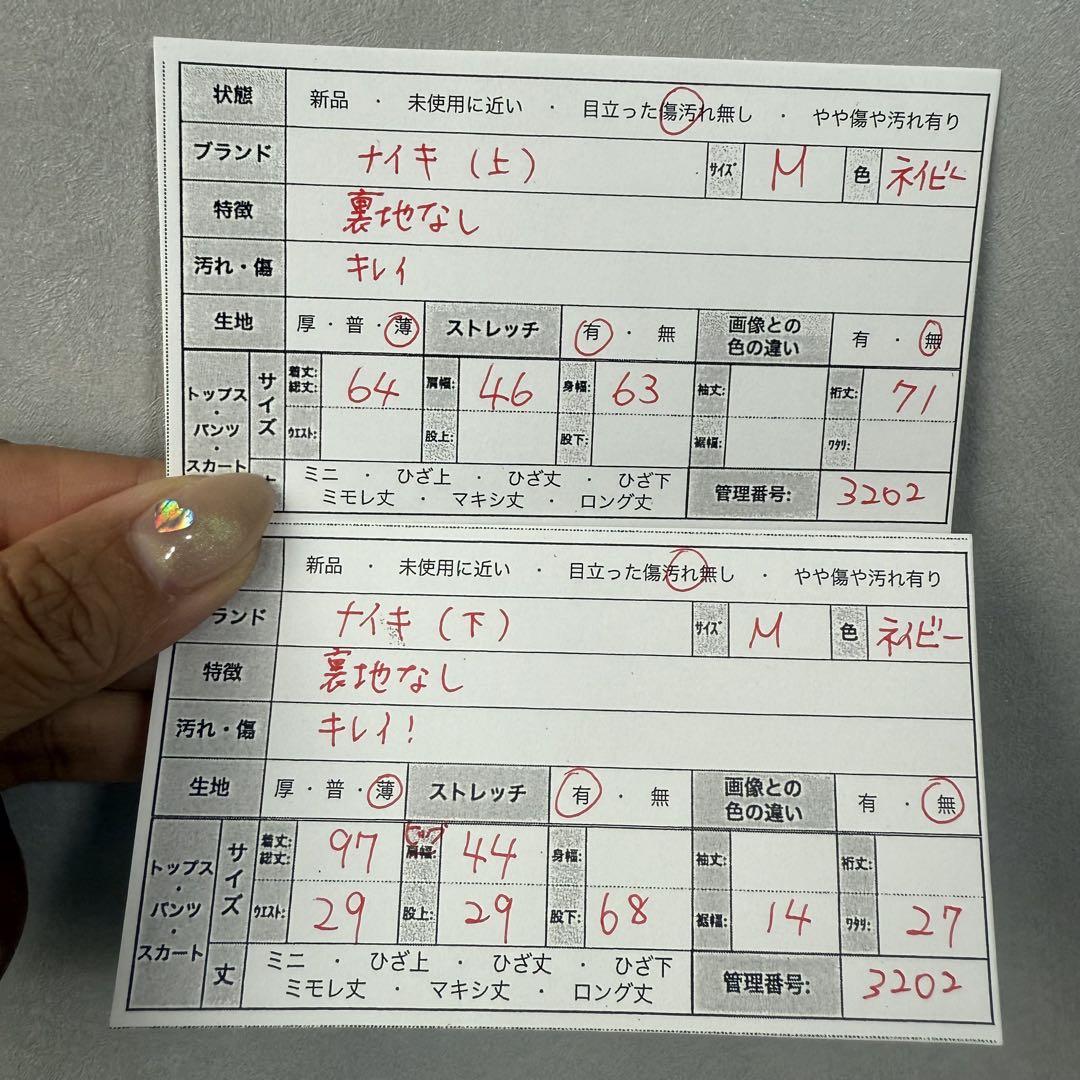 状態 新品 ・ 未使用に近い ・ 目立った傷汚れ無し ・ やや傷や汚れ有り
ブランド ナイキ(上) サイズ M 色 ネイビー
特徴 裏地なし
汚れ・傷 キレイ
生地 厚・普・薄 ストレッチ 有 ・ 無 画像との色の違い 有 ・ 無
トップス・パンツ・スカート サイズ 着丈:総丈: 64 肩幅: 46 身幅: 63 袖丈: 裄丈: 71
ウエスト: 股上: 股下: 裾幅: ワタリ:
丈 ミニ ・ ひざ上 ・ ひざ丈 ・ ひざ下
ミモレ丈 ・ マキシ丈 ・ ロング丈 管理番号: 3202
新品 ・ 未使用に近い ・ 目立った傷汚れ無し ・ やや傷や汚れ有り
ランド ナイキ(下) サイズ M 色 ネイビー
特徴 裏地なし
汚れ・傷 キレイ!
生地 厚・普・薄 ストレッチ 有 ・ 無 画像との色の違い 有 ・ 無
トップス・パンツ・スカート サイズ 着丈:総丈: 97 ヒップ 肩幅: 44 身幅: 袖丈: 裄丈:
ウエスト: 29 股上: 29 股下: 68 裾幅: 14 ワタリ: 27
丈 ミニ ・ ひざ上 ・ ひざ丈 ・ ひざ下
ミモレ丈 ・ マキシ丈 ・ ロング丈 管理番号: 3202